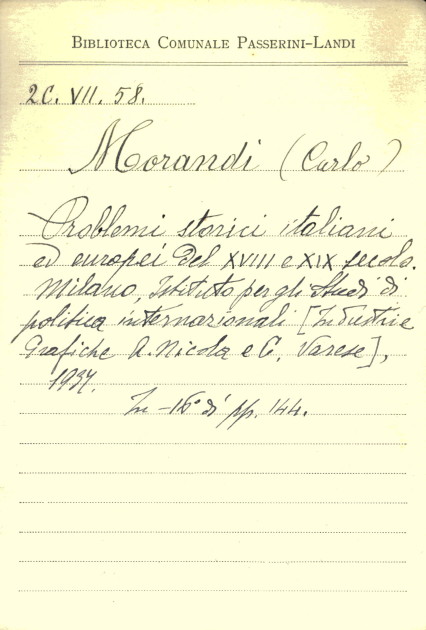 BIBLIOTECA COMUNALE PASSERINI-LANDI
2C. VII. 58.
Morandi (Carlo)
Problemi storici italiani
ed europei del XVIII e XIX secolo.
Milano, Istituto per gli Studi di
politica internazionali [Industrie
Grafiche A. Nicola e C., Varese],
1937.
In-16° di pp. 144.